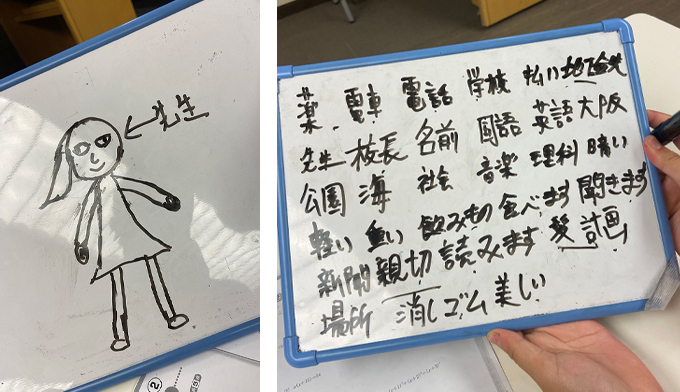 先生
薬 電車 電話 学校 払い 地図
先生 校長 名前 国語 英語 大阪
公園 海 社会 音楽 理科 晴い
軽い 重い 飲みもの 食べます 聞きます
新聞 親切 読みます 髪 計画
場所 消しゴム 美しい
②